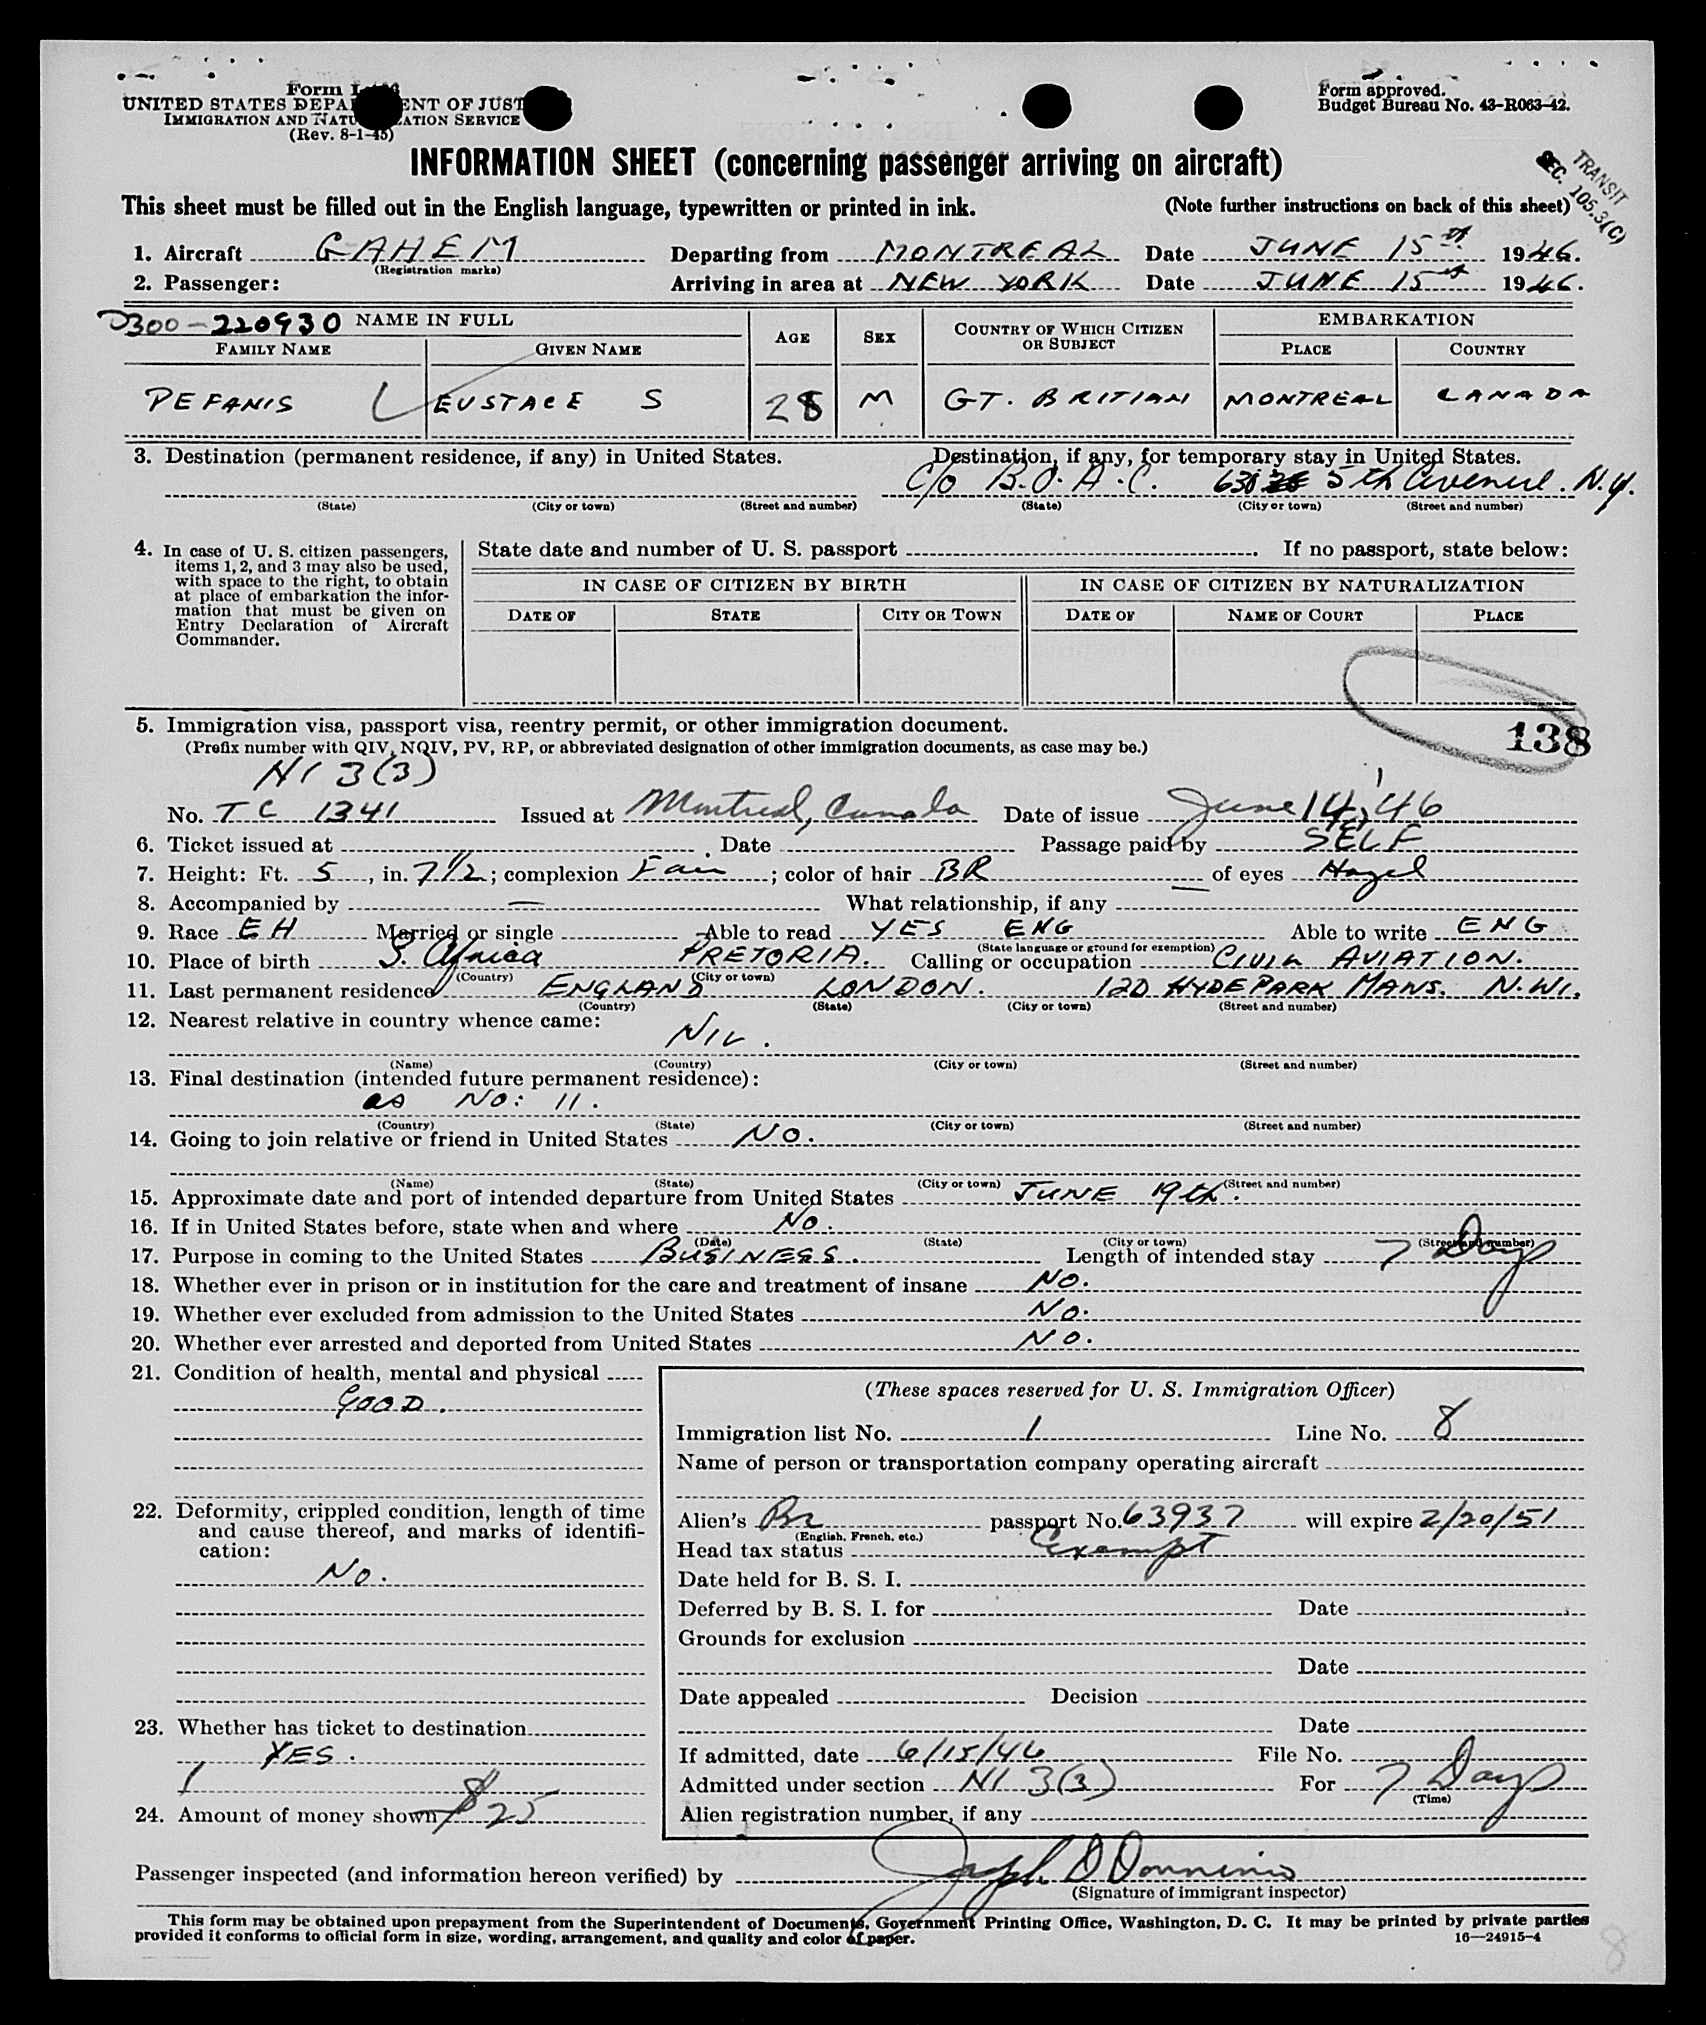 Form I-466
UNITED STATES DEPARTMENT OF JUSTICE
IMMIGRATION AND NATURALIZATION SERVICE
(Rev. 8-1-45)
Form approved.
Budget Bureau No. 43-R063-42.
INFORMATION SHEET (concerning passenger arriving on aircraft)
TRANSIT
SEC. 105.3(C)
This sheet must be filled out in the English language, typewritten or printed in ink. (Note further instructions on back of this sheet)
1. Aircraft G-AHEM Departing from MONTREAL Date JUNE 15th 1946.
(Registration marks)
2. Passenger: Arriving in area at NEW YORK Date JUNE 15th 1946.
0300-220930 NAME IN FULL
FAMILY NAME GIVEN NAME AGE SEX COUNTRY OF WHICH CITIZEN OR SUBJECT EMBARKATION PLACE COUNTRY
PEFANIS EUSTACE S 28 M GT. BRITIAN MONTREAL CANADA
3. Destination (permanent residence, if any) in United States. Destination, if any, for temporary stay in United States.
C/o B.O.A.C. 630 5th Avenue. N.Y.
(State) (City or town) (Street and number) (State) (City or town) (Street and number)
4. In case of U. S. citizen passengers, items 1, 2, and 3 may also be used, with space to the right, to obtain at place of embarkation the information that must be given on Entry Declaration of Aircraft Commander.
State date and number of U. S. passport If no passport, state below:
IN CASE OF CITIZEN BY BIRTH IN CASE OF CITIZEN BY NATURALIZATION
DATE OF STATE CITY OR TOWN DATE OF NAME OF COURT PLACE
138
5. Immigration visa, passport visa, reentry permit, or other immigration document.
(Prefix number with QIV, NQIV, PV, RP, or abbreviated designation of other immigration documents, as case may be.)
NI 3(3)
No. TC 1341 Issued at Montreal, Canada Date of issue June 14, '46
6. Ticket issued at Date Passage paid by SELF
7. Height: Ft. 5, in. 7 1/2; complexion Fair; color of hair BR of eyes Hazel
8. Accompanied by — What relationship, if any —
9. Race EH Married or single Able to read YES ENG Able to write ENG
(State language or ground for exemption)
10. Place of birth S. Africa PRETORIA. Calling or occupation CIVIL AVIATION.
(Country) (City or town)
11. Last permanent residence ENGLAND LONDON. 12D HYDE PARK MANS. N.W1.
(Country) (State) (City or town) (Street and number)
12. Nearest relative in country whence came:
NIL.
(Name) (Country) (City or town) (Street and number)
13. Final destination (intended future permanent residence):
as No: 11.
(Country) (State) (City or town) (Street and number)
14. Going to join relative or friend in United States NO.
(Name) (State) (City or town) (Street and number)
15. Approximate date and port of intended departure from United States JUNE 19th.
16. If in United States before, state when and where NO.
(Date) (State) (City or town) (Street and number)
17. Purpose in coming to the United States BUSINESS. Length of intended stay 7 Days
18. Whether ever in prison or in institution for the care and treatment of insane NO.
19. Whether ever excluded from admission to the United States NO.
20. Whether ever arrested and deported from United States NO.
21. Condition of health, mental and physical
GOOD.
22. Deformity, crippled condition, length of time and cause thereof, and marks of identification:
NO.
23. Whether has ticket to destination
YES.
24. Amount of money shown $25
(These spaces reserved for U. S. Immigration Officer)
Immigration list No. 1 Line No. 8
Name of person or transportation company operating aircraft
Alien's Br passport No. 63937 will expire 2/20/51
(English, French, etc.)
Head tax status Exempt
Date held for B. S. I.
Deferred by B. S. I. for Date
Grounds for exclusion
Date
Date appealed Decision
Date
If admitted, date 6/15/46 File No.
Admitted under section NI 3(3) For 7 Days
(Time)
Alien registration number, if any
Passenger inspected (and information hereon verified) by Joseph D
(Signature of immigrant inspector)
This form may be obtained upon prepayment from the Superintendent of Documents, Government Printing Office, Washington, D. C. It may be printed by private parties
provided it conforms to official form in size, wording, arrangement, and quality and color of paper.
16—24915-4
8